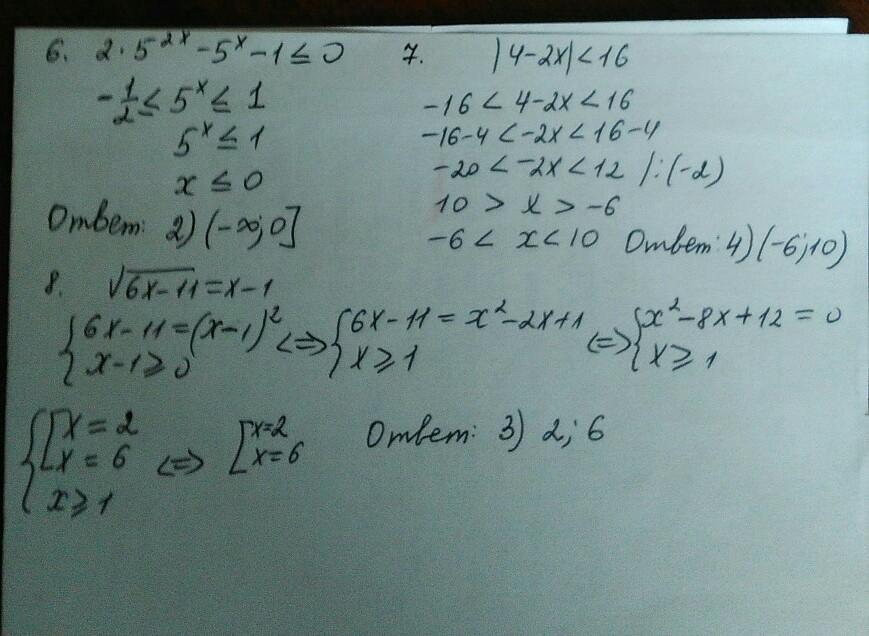 6. 2·5^{2x} - 5^x - 1 ≤ 0
-1/2 ≤ 5^x ≤ 1
5^x ≤ 1
x ≤ 0
Ответ: 2) (-∞; 0]
7. |4-2x| < 16
-16 < 4-2x < 16
-16-4 < -2x < 16-4
-20 < -2x < 12 /:(-2)
10 > x > -6
-6 < x < 10 Ответ: 4) (-6; 10)
8. √(6x-11) = x-1
{6x-11 = (x-1)^2 <=> {6x-11 = x^2-2x+1 <=> {x^2-8x+12 = 0
{x-1 ≥ 0 {x ≥ 1 {x ≥ 1
{[x = 2 <=> [x=2 Ответ: 3) 2; 6
[x = 6 [x=6
x ≥ 1